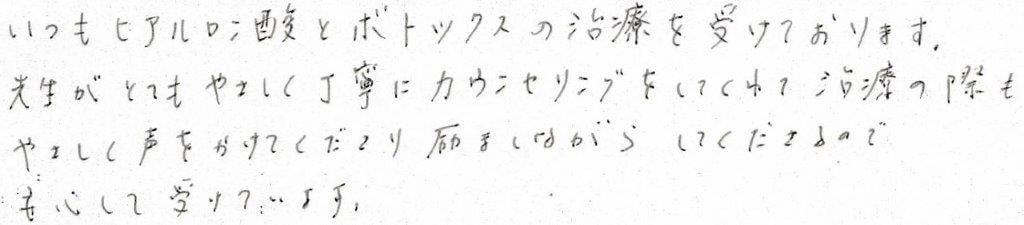 いつもヒアルロン酸とボトックスの治療を受けております。
先生がとてもやさしく丁寧にカウンセリングをしてくれて治療の際も
やさしく声をかけてくださり励ましながらしてくださるので
安心して受けています。